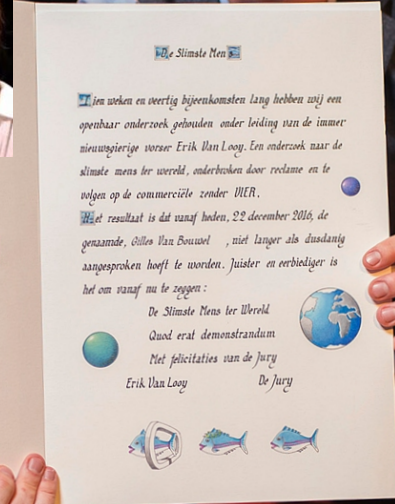 De Slimste Mens
Tien weken en veertig bijeenkomsten lang hebben wij een
openbaar onderzoek gehouden onder leiding van de immer
nieuwsgierige vorser Erik Van Looy. Een onderzoek naar de
slimste mens ter wereld, onderbroken door reclame en te
volgen op de commerciële zender VIER.
Het resultaat is dat vanaf heden, 22 december 2016, de
genaamde, Gilles Van Bouwel , niet langer als dusdanig
aangesproken hoeft te worden. Juister en eerbiediger is
het om vanaf nu te zeggen :
De Slimste Mens ter Wereld
Quod erat demonstrandum
Met felicitaties van de Jury
Erik Van Looy De Jury